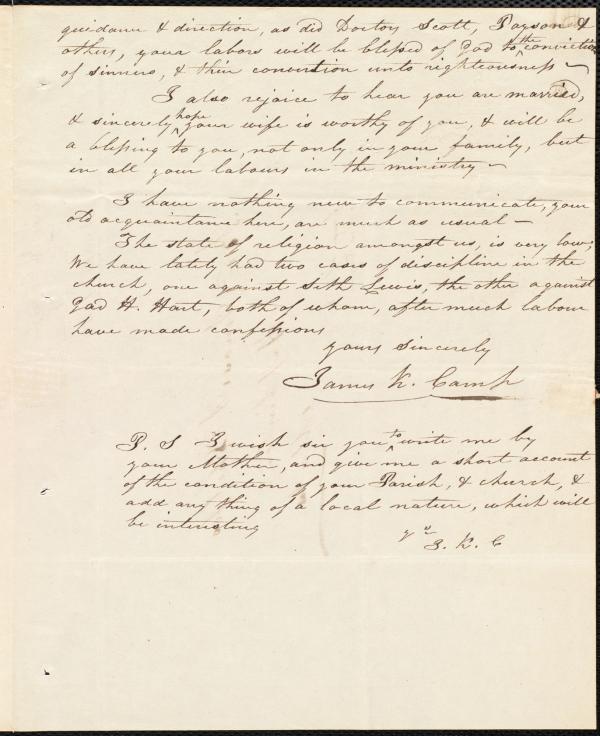 guidance & direction, as did Doctors Scott, Payson &
others, your labors will be blessed of God to the conviction
of sinners, & their convertion unto righteousness –
I also rejoice to hear you are married,
& sincerely hope your wife is worthy of you, & will be
a blessing to you, not only in your family, but
in all your labours in the ministry –
I have nothing new to communicate, your
old acquaintance here, are much as usual –
The state of religion amongst us, is very low,
We have lately had two cases of discipline in the
church, one against Seth Lewis, the other against
Gad H. Hart, both of whom, after much labour
have made confessions
yours sincerely
James K. Camp
P. S I wish sir you to write me by
your Mother, and give me a short account
of the condition of your Parish, & church, &
add any thing of a local nature, which will
be interesting
J. K. C